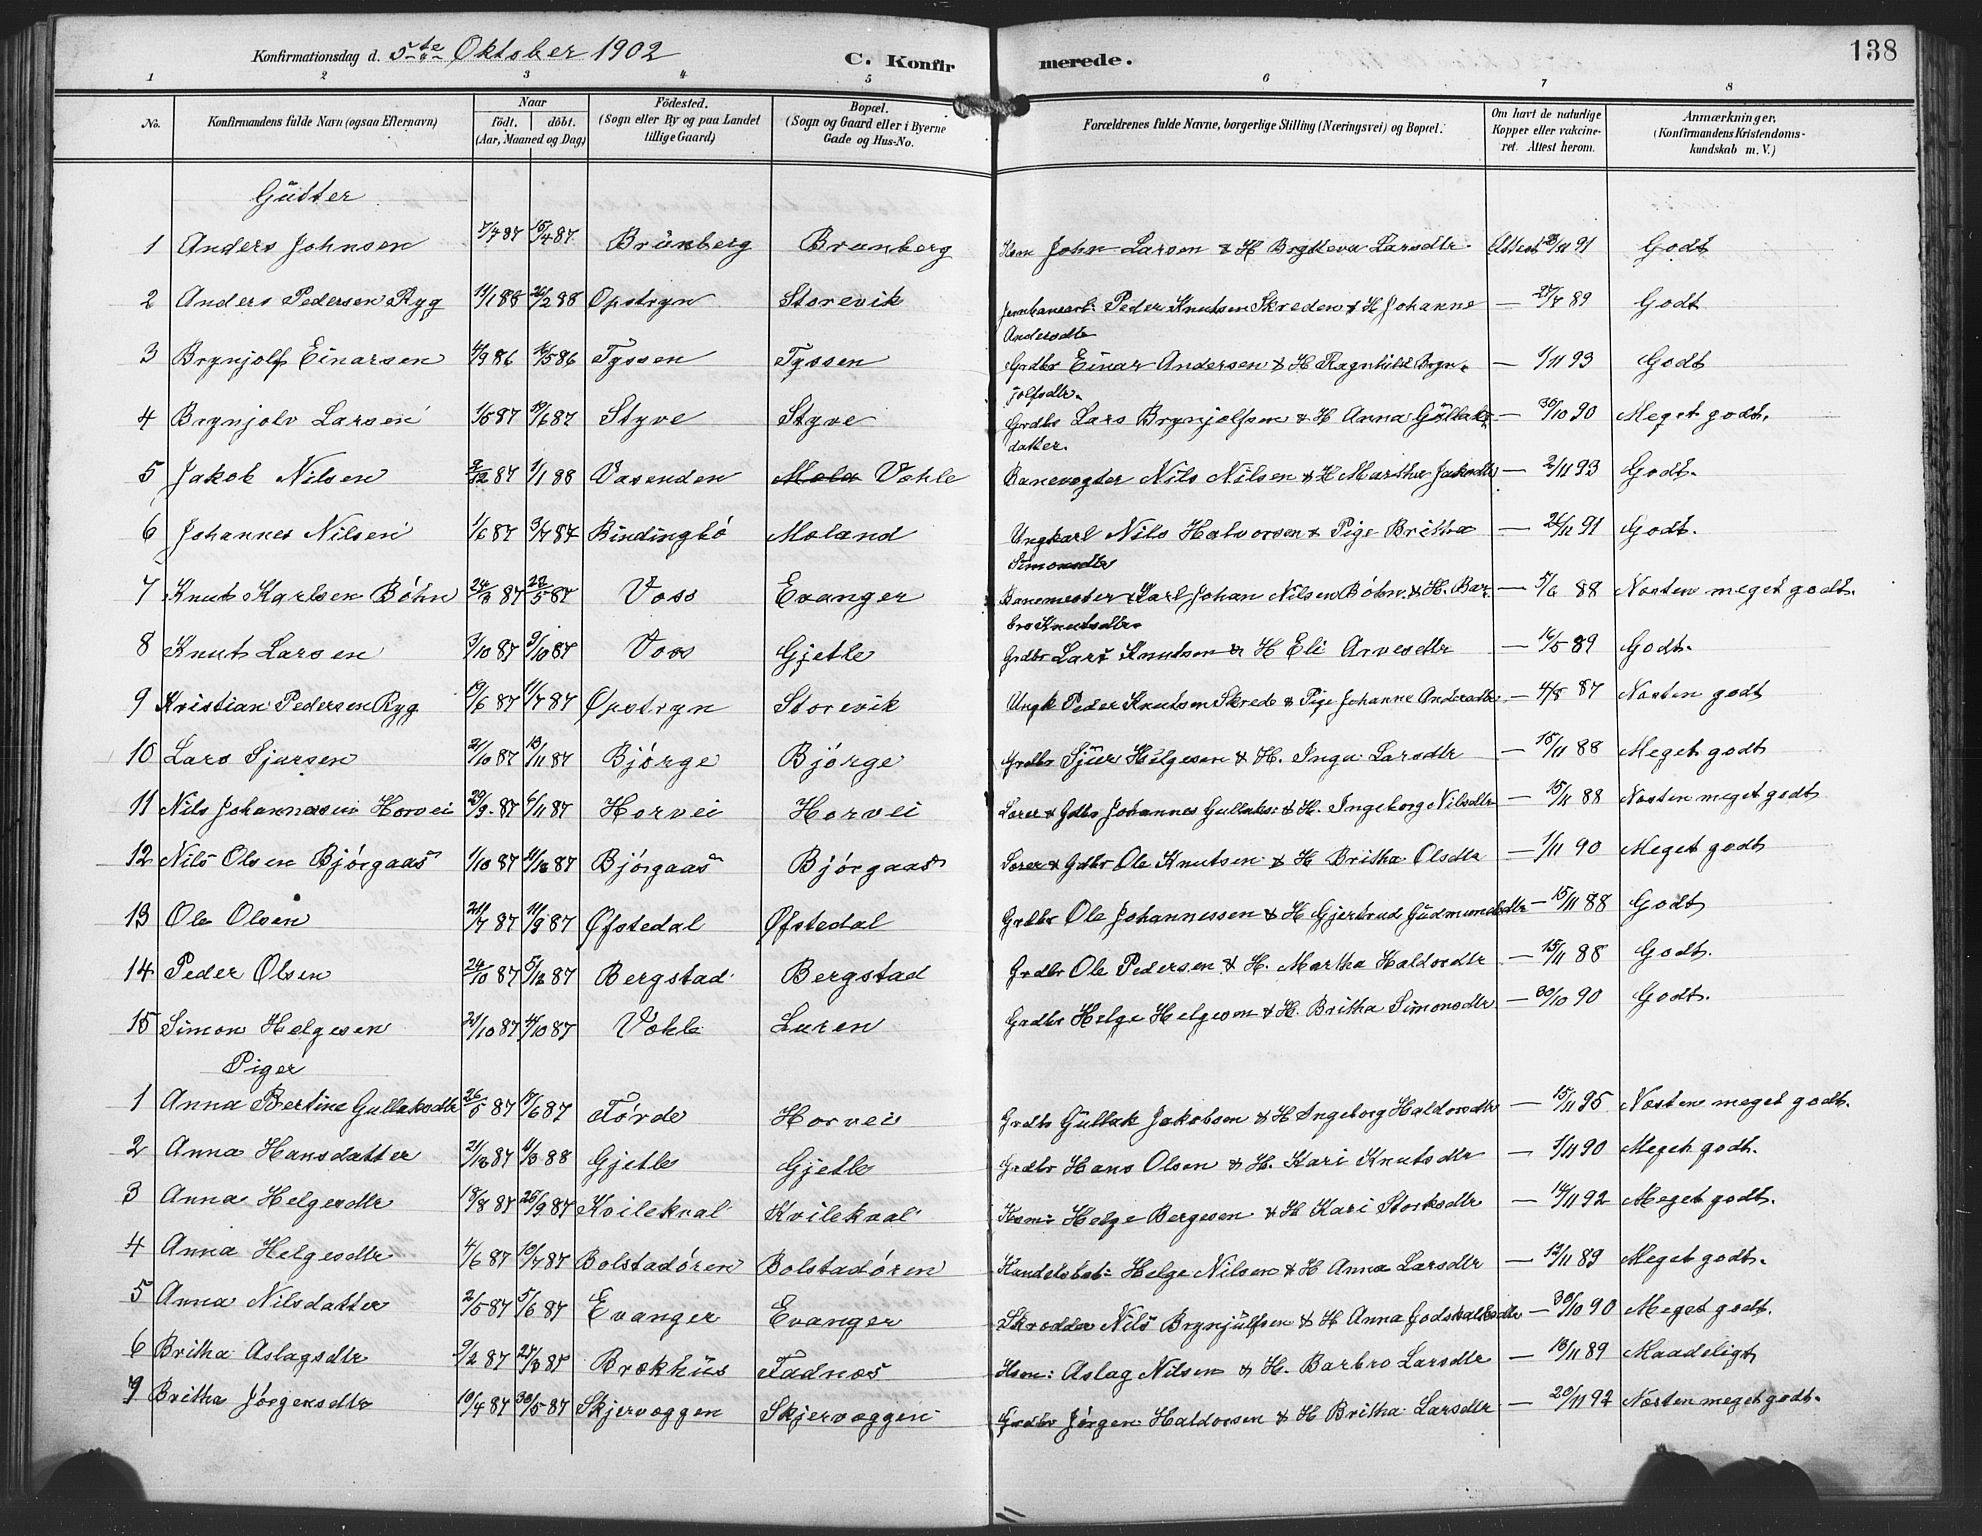 Konfirmationsdag d. 5te Oktober 1902 C. Konfirmerede. 138
1 2 3 4 5 6 7 8
No. Konfirmandens fulde Navn (ogsaa Efternavn) Naar født. døbt. (Aar, Maaned og Dag) Fødested. (Sogn eller By og paa Landet tillige Gaard) Bopæl. (Sogn og Gaard eller i Byerne Gade og Hus-No. Forældrenes fulde Navne, borgerlige Stilling (Næringsvei) og Bopæl. Om havt de naturlige Kopper eller vakcineret. Attest herom. Anmærkninger. (Konfirmandens Kristendomskundskab m. V.)
Gutter
1 Anders Johnsen 7/4 87 15/4 87 Brunberg Brunberg John Larsen & H Brytteva Larsdtr. Attest 91 Godt
2 Anders Pedersen Ryg 11/1 88 26/2 88 Opstryn Storevik Jernbanearb: Peder Knutsen Skreden & H Johanne Andersdtr — 27/7 89 Godt
3 Brynjolf Einarsen 86 86 Tyssen Tyssen Grdbr Einar Andersen & H Ragnhild Brynjolfsdtr. — 1/11 93 Godt
4 Brynjolv Larsen 1/5 87 19/6 87 Styve Styve Grdbr Lars Brynjolfsen & H Anna Gullaksdatter. — 30/10 90 Meget godt.
5 Jakob Nilsen 87 1/1 88 Vasenden Vohle Banevogter Nils Nilsen & H Martha Jaksdtr — 2/11 93 Godt.
6 Johannes Nilsen 1/6 87 3/7 87 Bindingbø Moland Ungkarl Nils Halvorsen & Pige Britha Simonsdtr — 26/11 91 Godt.
7 Knut Karlsen Bøhn 24/3 87 22/5 87 Voss Evanger Banemester Karl Johan Nilsen Bøhn & H. Barbro Knutsdtr. — 5/6 88 Næsten meget godt.
8 Knut Larsen 3/10 87 9/10 87 Voss Gjetle Grdbr Lars Knutsen & H Eli Arvesdtr — 16/5 89 Godt.
9 Kristian Pedersen Ryg 19/6 87 1/7 87 Opstryn Storevik Ungk Peder Knutsen Skrede & Pige Johanne Andersdtr — 4/8 87 Næsten godt
10 Lars Sjursen 21/10 87 13/11 87 Bjørge Bjørge Grdbr Sjur Helgesen & H. Inga Larsdtr — 15/11 88 Meget godt
11 Nils Johannessen Horvei 29/9 87 6/11 87 Horvei Horvei Lærer & Gdbr Johannes Gullaks: & H. Ingeborg Nilsdtr — 15/11 88 Næsten meget godt
12 Nils Olsen Bjørgaas 1/10 87 4/12 87 Bjørgaas Bjørgaas Lærer & Gdbr Ole Knutsen & H Britha Olsdtr — 1/11 90 Meget godt
13 Ole Olsen 24/7 87 11/9 87 Øfstedal Øfstedal Grdbr Ole Johannessen & H Gjertrud Gudmundsdtr — 15/11 88 Godt
14 Peder Olsen 24/10 87 5/12 87 Bergstad Bergstad Grdbr Ole Pedersen & H. Martha Haldorsdtr — 15/11 88 Godt.
15 Simon Helgesen 21/10 87 10 87 Vohle Luren Grdbr Helge Helgesen & H. Britha Simonsdtr — 30/10 90 Godt.
Piger
1 Anna Bertine Gullaksdtr 26/5 87 17/6 87 Førde Horvei Grdbr Gullak Jakobsen & H Ingeborg Haldorsdtr — 15/11 95 Næsten meget godt.
2 Anna Hansdatter 21/12 87 88 Gjetle Gjetle Grdbr Hans Olsen & H. Kari Knutsdtr — 1/11 90 Meget godt.
3 Anna Helgesdtr 18/8 87 25/9 87 Kvilekval Kvilekval Helge Bergesen & H Kari Storksdtr — 14/11 92 Meget godt.
4 Anna Helgesdtr 4/6 87 10/7 87 Bolstadøren Bolstadøren Handelsbet: Helge Nilsen & H Anna Larsdtr — 12/11 89 Meget godt.
5 Anna Nilsdatter 2/5 87 5/6 87 Evanger Evanger Skrædder Nils Brynjulfsen & H Anna Godskalksdtr — 30/10 90 Meget godt.
6 Britha Aslagsdtr 9/2 87 27/3 87 Brækhus Fadnæs Hsm: Aslag Nilsen & H. Barbro Larsdtr — 13/11 89 Maadeligt
7 Britha Jørgensdtr 10/4 87 30/5 87 Skjervæggen Skjervæggen Grdbr Jørgen Haldorsen & H Britha Larsdtr — 20/11 92 Næsten meget godt.